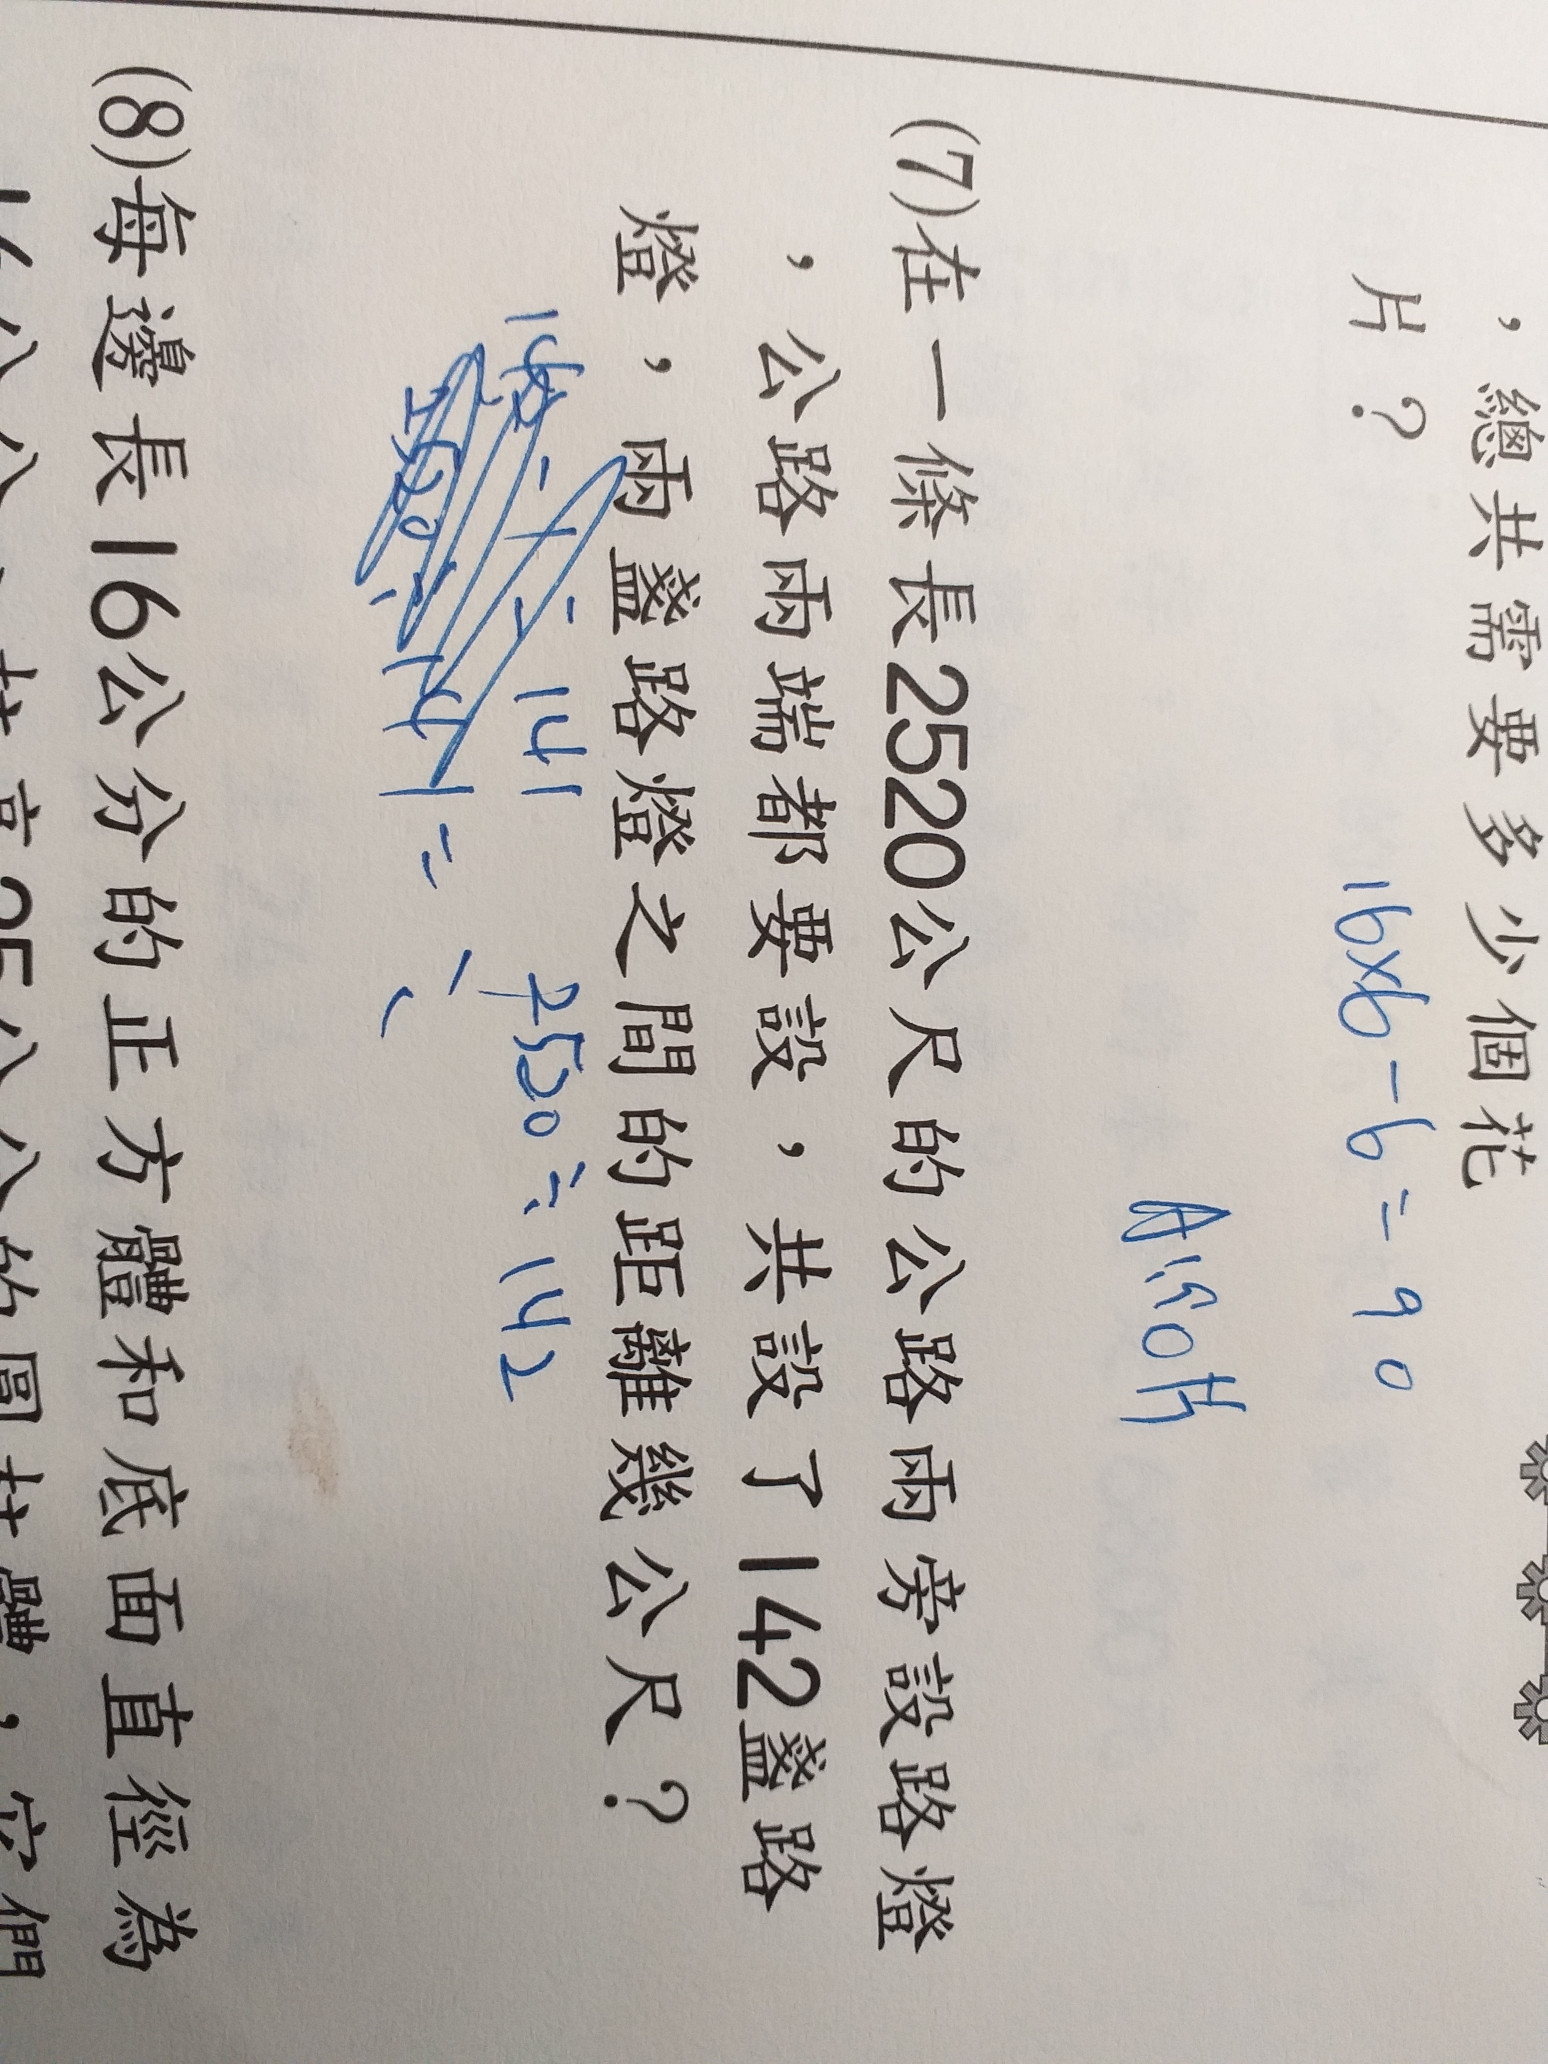 ，總共需要多少個花
片？
16×6-6=90
A:90片
(7)在一條長2520公尺的公路兩旁設路燈
，公路兩端都要設，共設了142盞路
燈，兩盞路燈之間的距離幾公尺？
142-1=141
2520÷142
2520÷141=
(8)每邊長16公分的正方體和底面直徑為